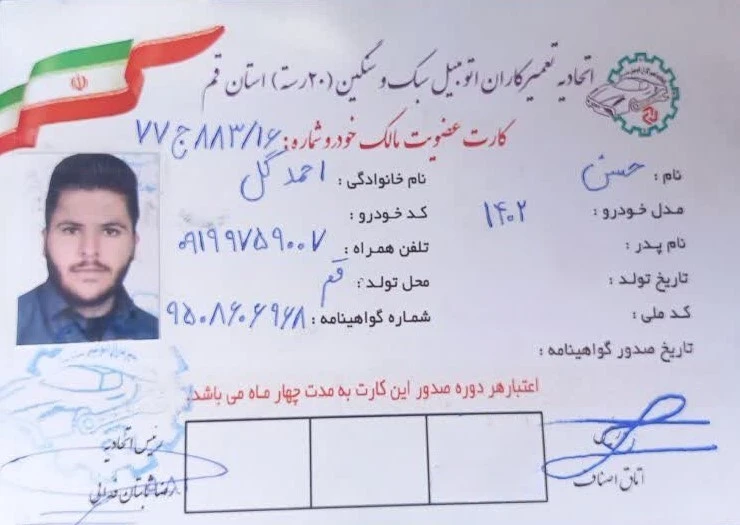 اتحادیه تعمیرکاران اتومبیل سبک و سنگین (۲۰ رسته) استان قم
کارت عضویت مالک خودرو شماره: ۷۷ ج ۸۸۳/۱۶
نام: حسن نام خانوادگی: احمد گل
مدل خودرو: ۱۴۰۲ کد خودرو:
نام پدر: تلفن همراه: ۰۹۱۹۹۷۵۹۰۰۷
تاریخ تولد: محل تولد: قم
کد ملی: شماره گواهینامه: ۹۵۰۸۶۰۶۹۶۸
تاریخ صدور گواهینامه:
اعتبار هر دوره صدور این کارت به مدت چهار ماه می باشد.
رئیس رئیس اتحادیه
اتاق اصناف